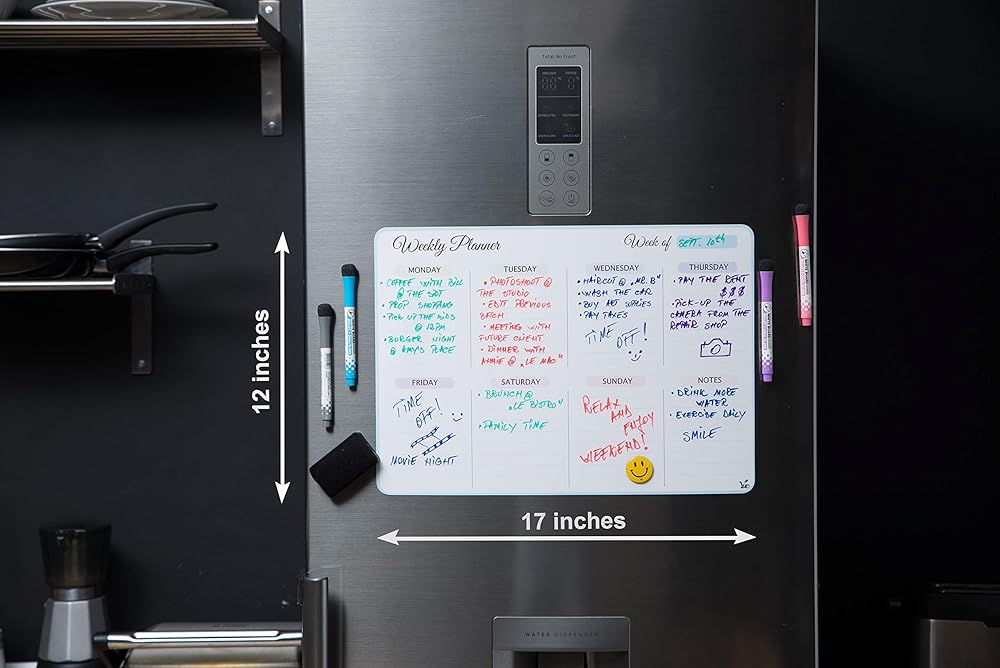 Total No Frost
Weekly Planner
Week of SEPT. 10th
MONDAY
• COFFEE WITH BILL
@ THE SPOT
• PROP SHOPPING
• PICK UP THE KIDS
@ 12PM
• BURGER NIGHT
@ AMY'S PLACE
TUESDAY
• PHOTOSHOOT @
THE STUDIO
• EDIT PREVIOUS
BATCH
• MEETING WITH
FUTURE CLIENT
• DINNER WITH
ANNIE @ „LE MAC"
WEDNESDAY
• HAIRCUT @ „MR. B"
• WASH THE CAR
• BUY ART SUPPLIES
• PAY TAXES
TIME OFF!
THURSDAY
• PAY THE RENT
$$$
• PICK-UP THE
CAMERA FROM THE
REPAIR SHOP
FRIDAY
TIME
OFF!
MOVIE NIGHT
SATURDAY
• BRUNCH @
„LE BISTRO"
• FAMILY TIME
SUNDAY
RELAX
AND
ENJOY
WEEKEND!
NOTES
• DRINK MORE
WATER
• EXERCISE DAILY
SMILE
12 inches
17 inches
WATER DISPENSER